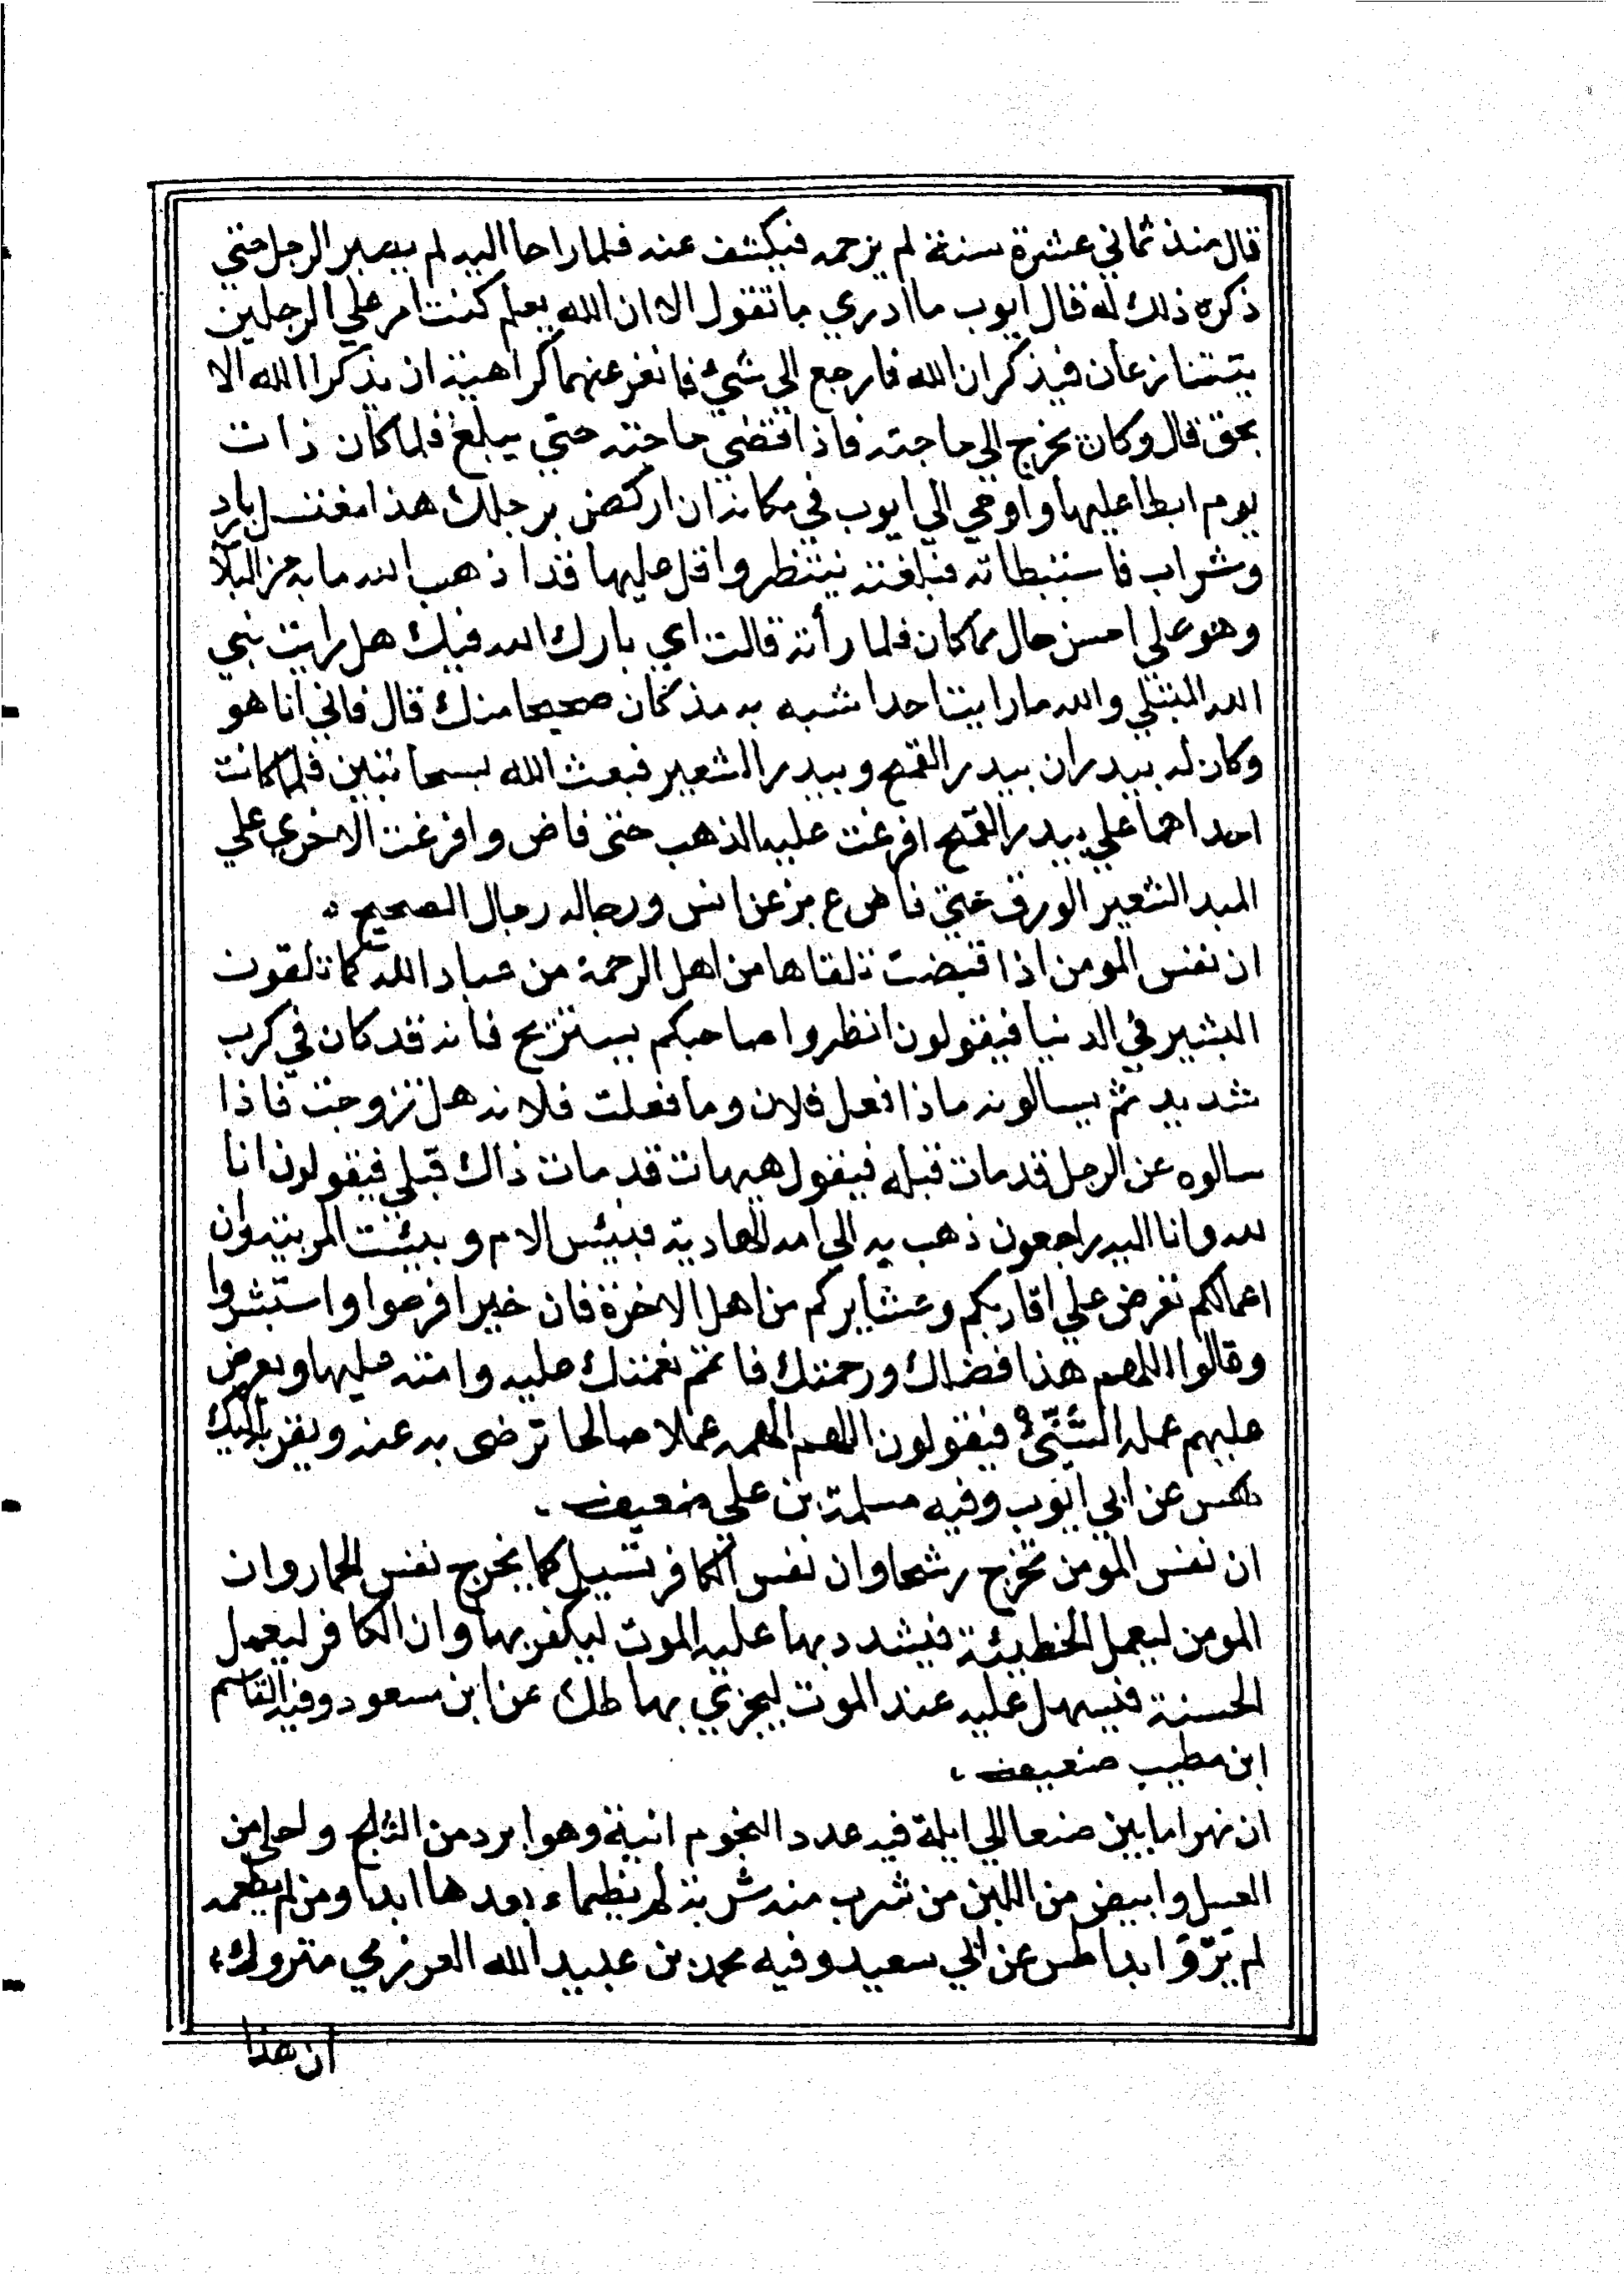 قال منذ ثماني عشرة سنة لم يرحمه فيكشف عنه فلما راحا اليه لم يصبر الرجل حتي
ذكره ذلك له فقال ايوب ما ادري ما تقول الا ان الله يعلم كنت امر علي الرجلين
يتنازعان فيذكران الله فارجع الي شيء فانفر عنهما كراهية ان يذكرا الله الا
بحق قال وكان يخرج الي حاجته فاذا قضي حاجته حتي يبلغ فلما كان ذات
يوم ابطا عليها واوحي الي ايوب في مكانه ان اركض برجلك هذا مغتسل بارد
وشراب فاستبطاته فبلغته ينتظر واقبل عليها قد اذهب الله ما به من البلا
وهو علي احسن حال مما كان فلما رأته قالت اي بارك الله فيك هل رايت نبي
الله المبتلي والله ما رايت احدا شبه به مذ كان صحيحا منك قال فاني انا هو
وكان له بيدران بيدر القمح وبيدر الشعير فبعث الله بسحابتين فلما كانت
احداهما علي بيدر القمح افرغت عليه الذهب حتى فاض وافرغت الاخري علي
البيد الشعير الورق حتى فاض ع بز عن انس ورجاله رجال الصحيح
ان نفس المومن اذا قبضت تلقاها من اهل الرحمة من عباد الله كما تلقون
البشير في الدنيا فيقولون انظروا صاحبكم يستريح فانه قد كان في كرب
شديد ثم يسالونه ماذا فعل فلان وما فعلت فلانه هل تزوجت فاذا
سالوه عن الرجل قد مات قبله فيقول هيهات قد مات ذاك قبلي فيقولون انا
لله وانا اليه راجعون ذهب به الي امه الهاوية فبئس الام وبئست المربية وان
اعمالكم تعرض علي اقاربكم وعشايركم من اهل الاخرة فان خيرا فرحوا واستبشروا
وقالوا اللهم هذا فضلك ورحمتك فاتمم نعمتك عليه وامته عليها ويعرض
عليهم عمله السَّيِّئُ فيقولون اللهم الهمه عملا صالحا ترضى به عنه ويقربه اليك
طكس عن ابي ايوب وفيه مسلمة بن علي ضعيف
ان نفس المومن تخرج رشحا وان نفس الكافر تسيل كما يخرج نفس الحمار وان
المومن ليعمل الخطيئة فيشدد بها عليه الموت ليكفر بها وان الكافر ليعمل
الحسنة فيسهل عليه عند الموت ليجزي بها طك عن ابن مسعود وفيه القاسم
ابن مطيب ضعيف
ان نهرا ما بين صنعا الي ايلة فيه عدد النجوم انية وهو ابرد من الثلج واحلي من
العسل وابيض من اللبن من شرب منه شربة لم يظماء بعدها ابدا ومن لم يطعمه
لم يَرْوَ ابدا طس عن ابي سعيد وفيه محمد بن عبيد الله العرزمي متروك
ان هذا